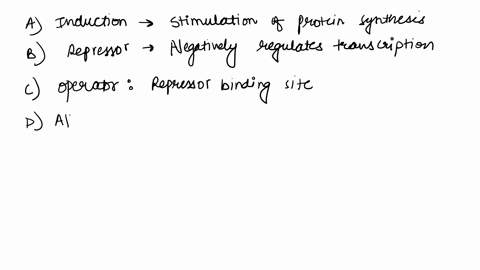 A) Induction → Stimulation of protein synthesis
B) Repressor → Negatively regulates transcription
C) Operator : Repressor binding site
D) Al